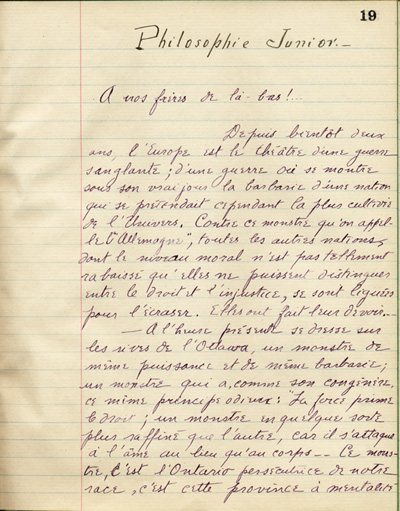 19
Philosophie Junior.-
A nos frères de là-bas!...
Depuis bientôt deux
ans, l'Europe est le théâtre d'une guerre
sanglante; d'une guerre où se montre
sous son vrai jour la barbarie d'une nation
qui se prétendait cependant la plus cultivée
de l'Univers. Contre ce monstre qu'on appel-
le "l'Allemagne", toutes les autres nations,
dont le niveau moral n'est pas tellement
rabaissé qu'elles ne puissent distinguer
entre le droit et l'injustice, se sont liguées
pour l'écraser. Elles ont fait leur devoir.--
- A l'heure présente se dresse sur
les rives de l'Ottawa, un monstre de
même puissance et de même barbarie;
un monstre qui a, comme son congénère,
ce même principe odieux: La force prime
le droit; un monstre en quelque sorte
plus raffiné que l'autre, car il s'attaque
à l'âme au lieu qu'au corps.-- Ce mons-
tre, c'est l'Ontario persécutrice de notre
race, c'est cette province à mentalité